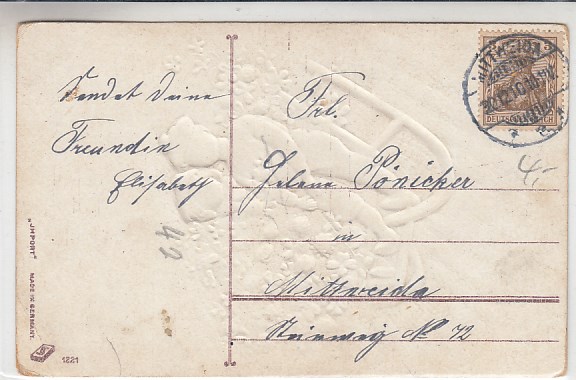 Sendet Deine
Freundin
Elisabeth
Frl.
Helene Pönicker
in
Mittweida
Steinweg No 72
MITTWEIDA
30.12.10.
3
DEUTSCHES REICH
4,-
42
"IMPORT" MADE IN GERMANY.
1221